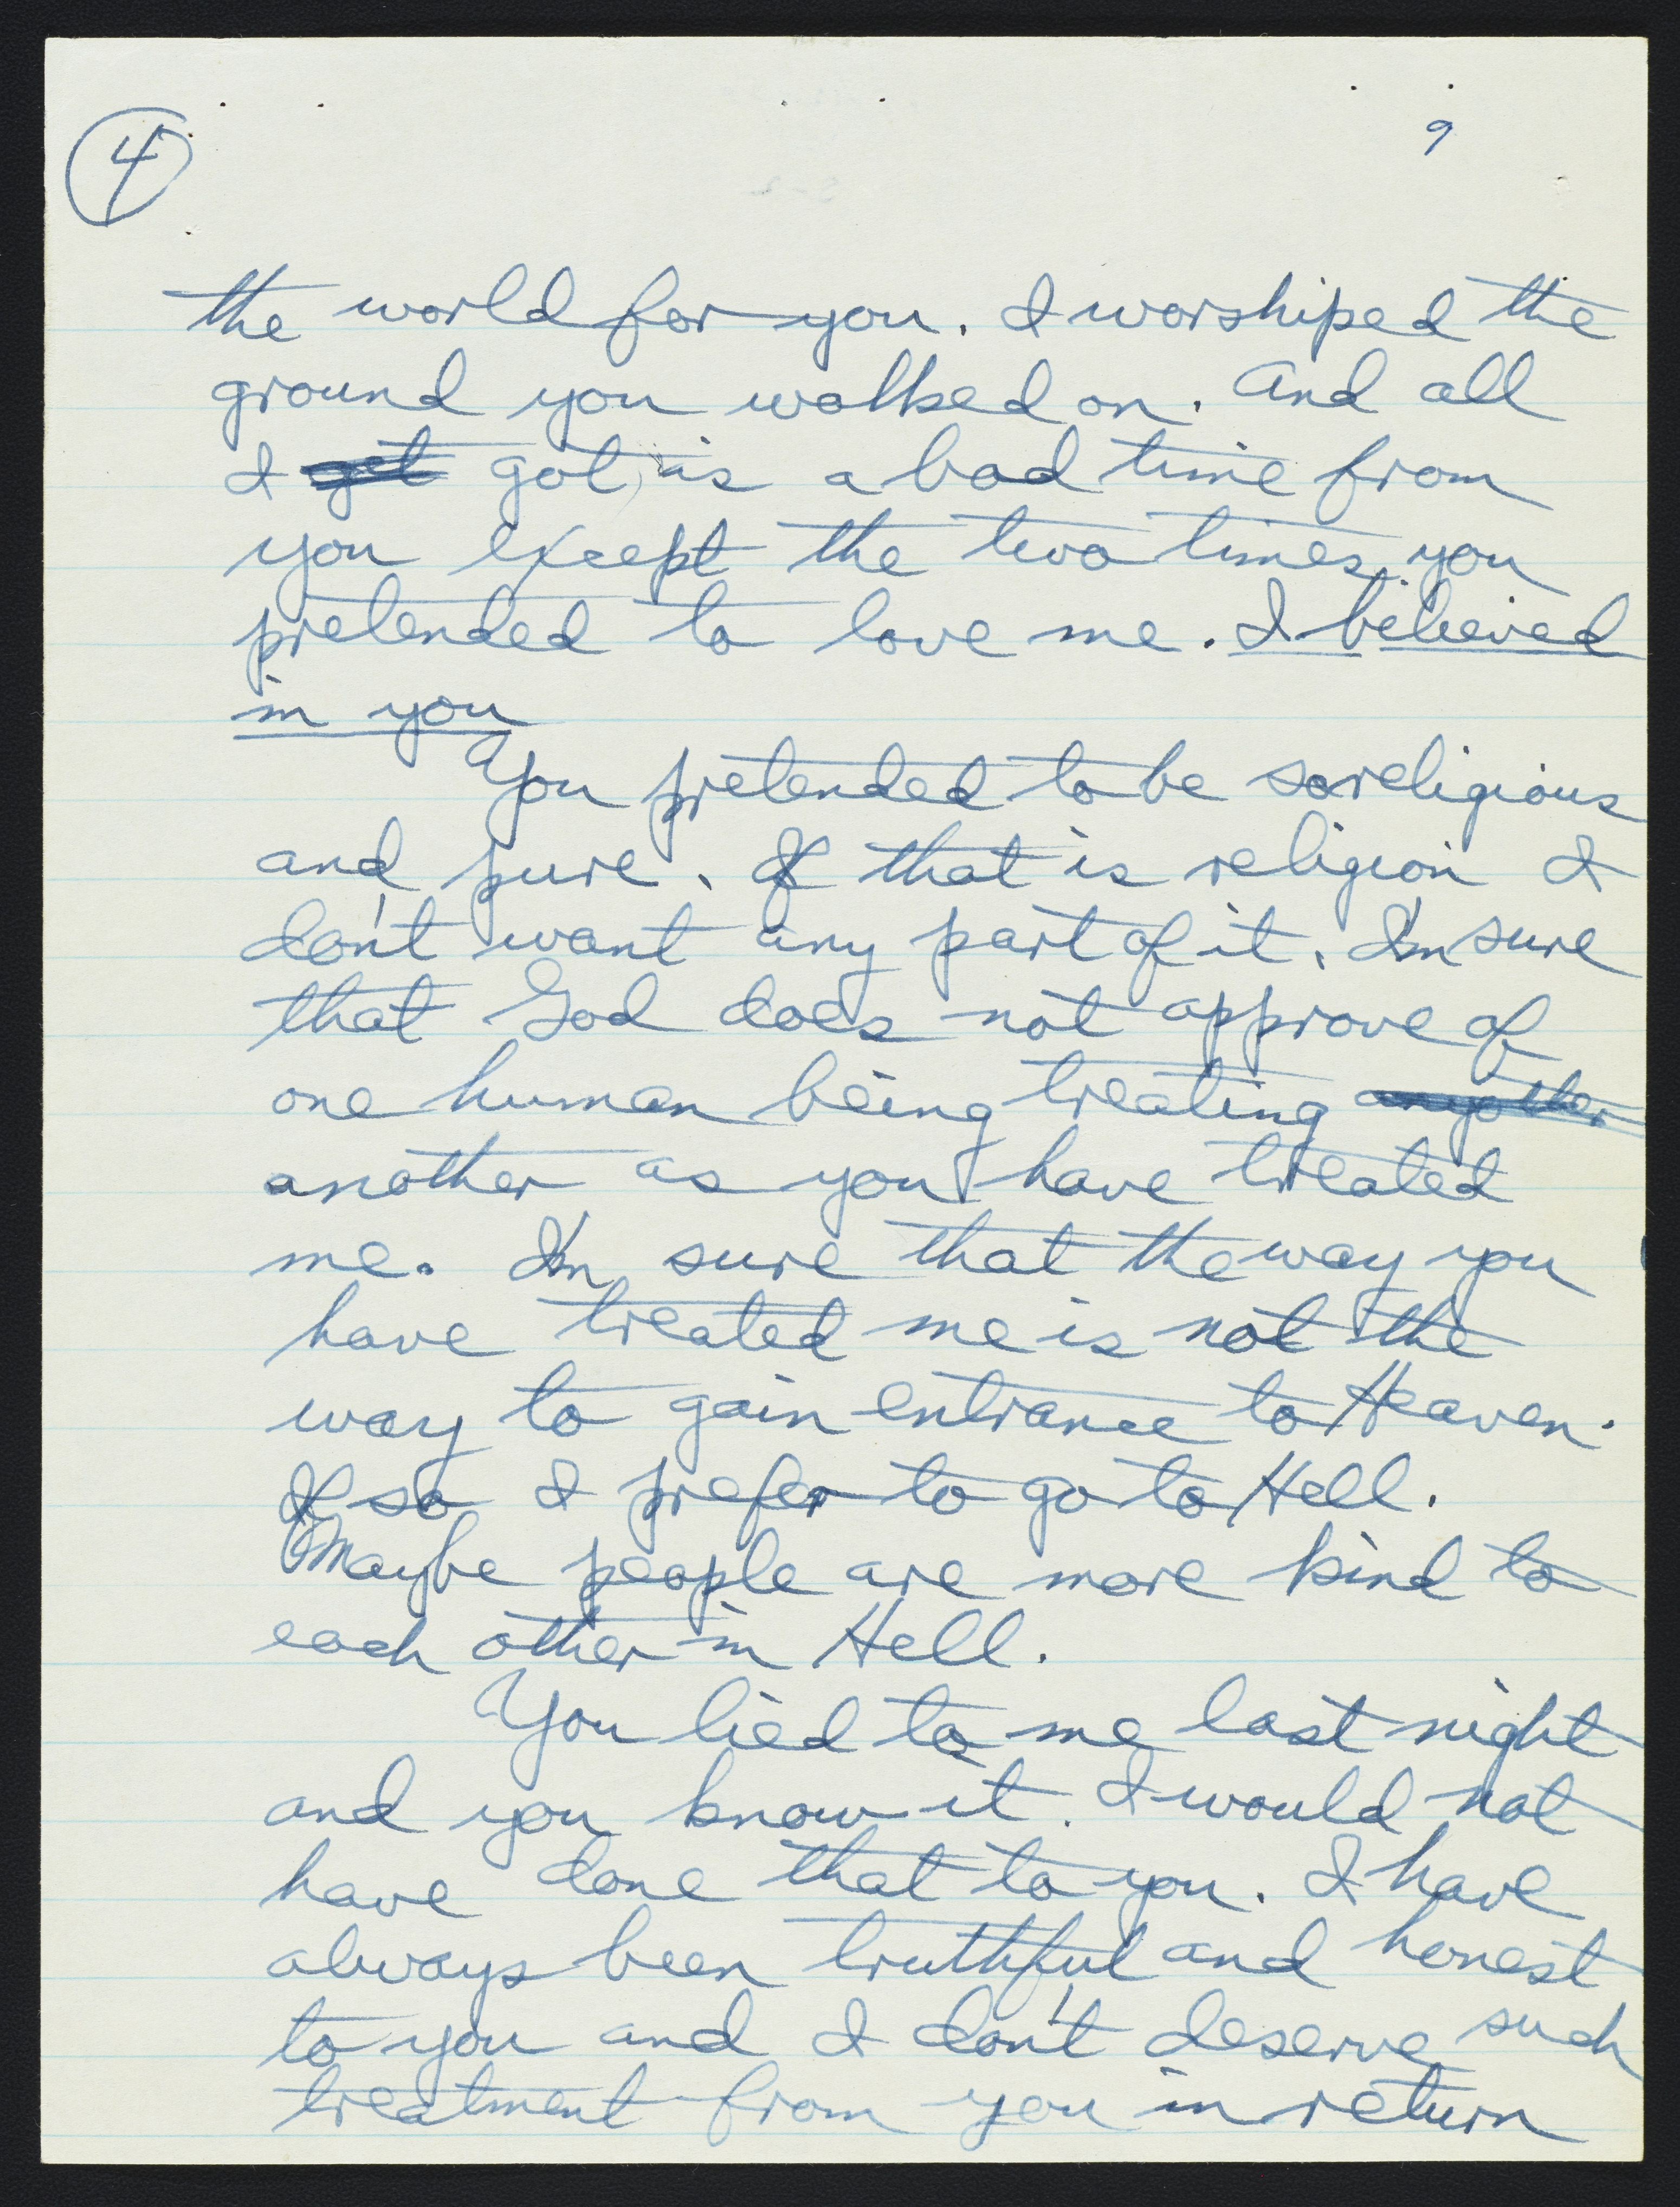 4
9
the world for you. I worshiped the
ground you walked on. And all
I get got is a bad time from
you except the two times you
pretended to love me. I believed
in you
You pretended to be so religious
and pure. If that is religion I
don't want any part of it. I'm sure
that God does not approve of
one human being treating any other
another as you have treated
me. I'm sure that the way you
have treated me is not the
way to gain entrance to Heaven.
If so I prefer to go to Hell.
Maybe people are more kind to
each other in Hell.
You lied to me last night
and you know it. I would not
have done that to you. I have
always been truthful and honest
to you and I don't deserve such
treatment from you in return